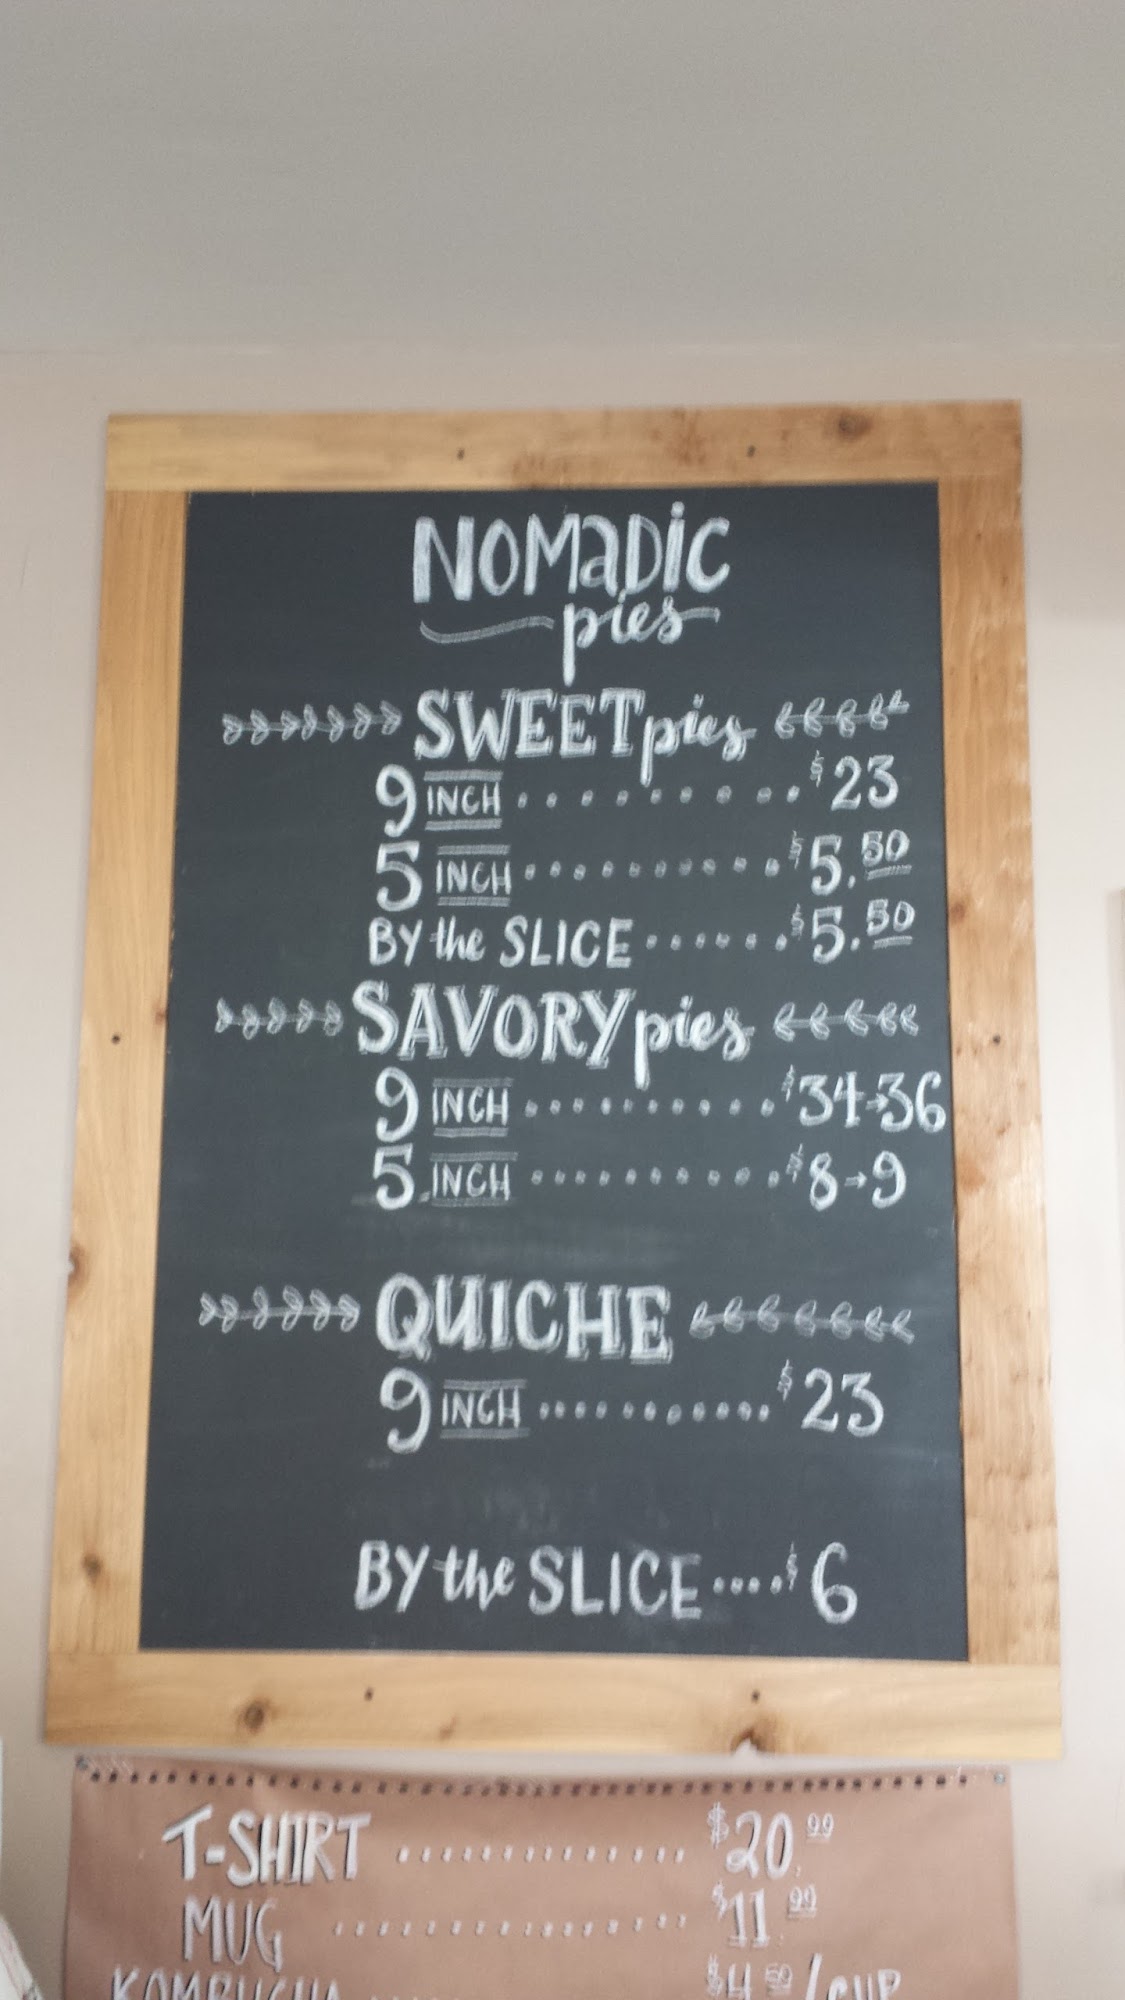 NOMADIC
pies
SWEET pies
9 INCH .......... $23
5 INCH .......... $5.50
BY the SLICE ...... $5.50
SAVORY pies
9 INCH .......... $34→36
5 INCH .......... $8→9
QUICHE
9 INCH ........... $23
BY the SLICE .... $6
T-SHIRT .............. $20.99
MUG .............. $11.99
KOMBUCHA ... $4.50/CUP